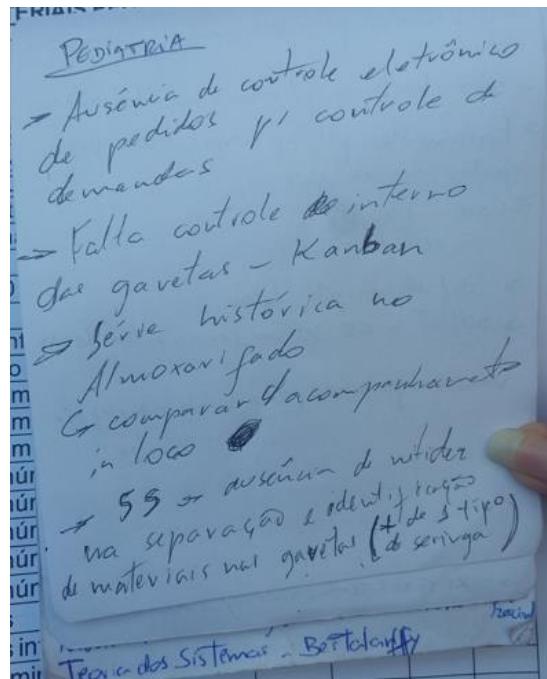 PEDIATRIA
→ Ausência de controle eletrônico
de pedidos p/ controle de
demandas
→ Falta controle interno
das gavetas - Kanban
→ Série histórica no
Almoxarifado
↳ comparar c/ acompanhamento
in loco
→ 5S → ausência de nitidez
na separação e identificação
de materiais nas gavetas (+ de 1 tipo
de seringa)
Teoria dos Sistemas - Bertalanffy